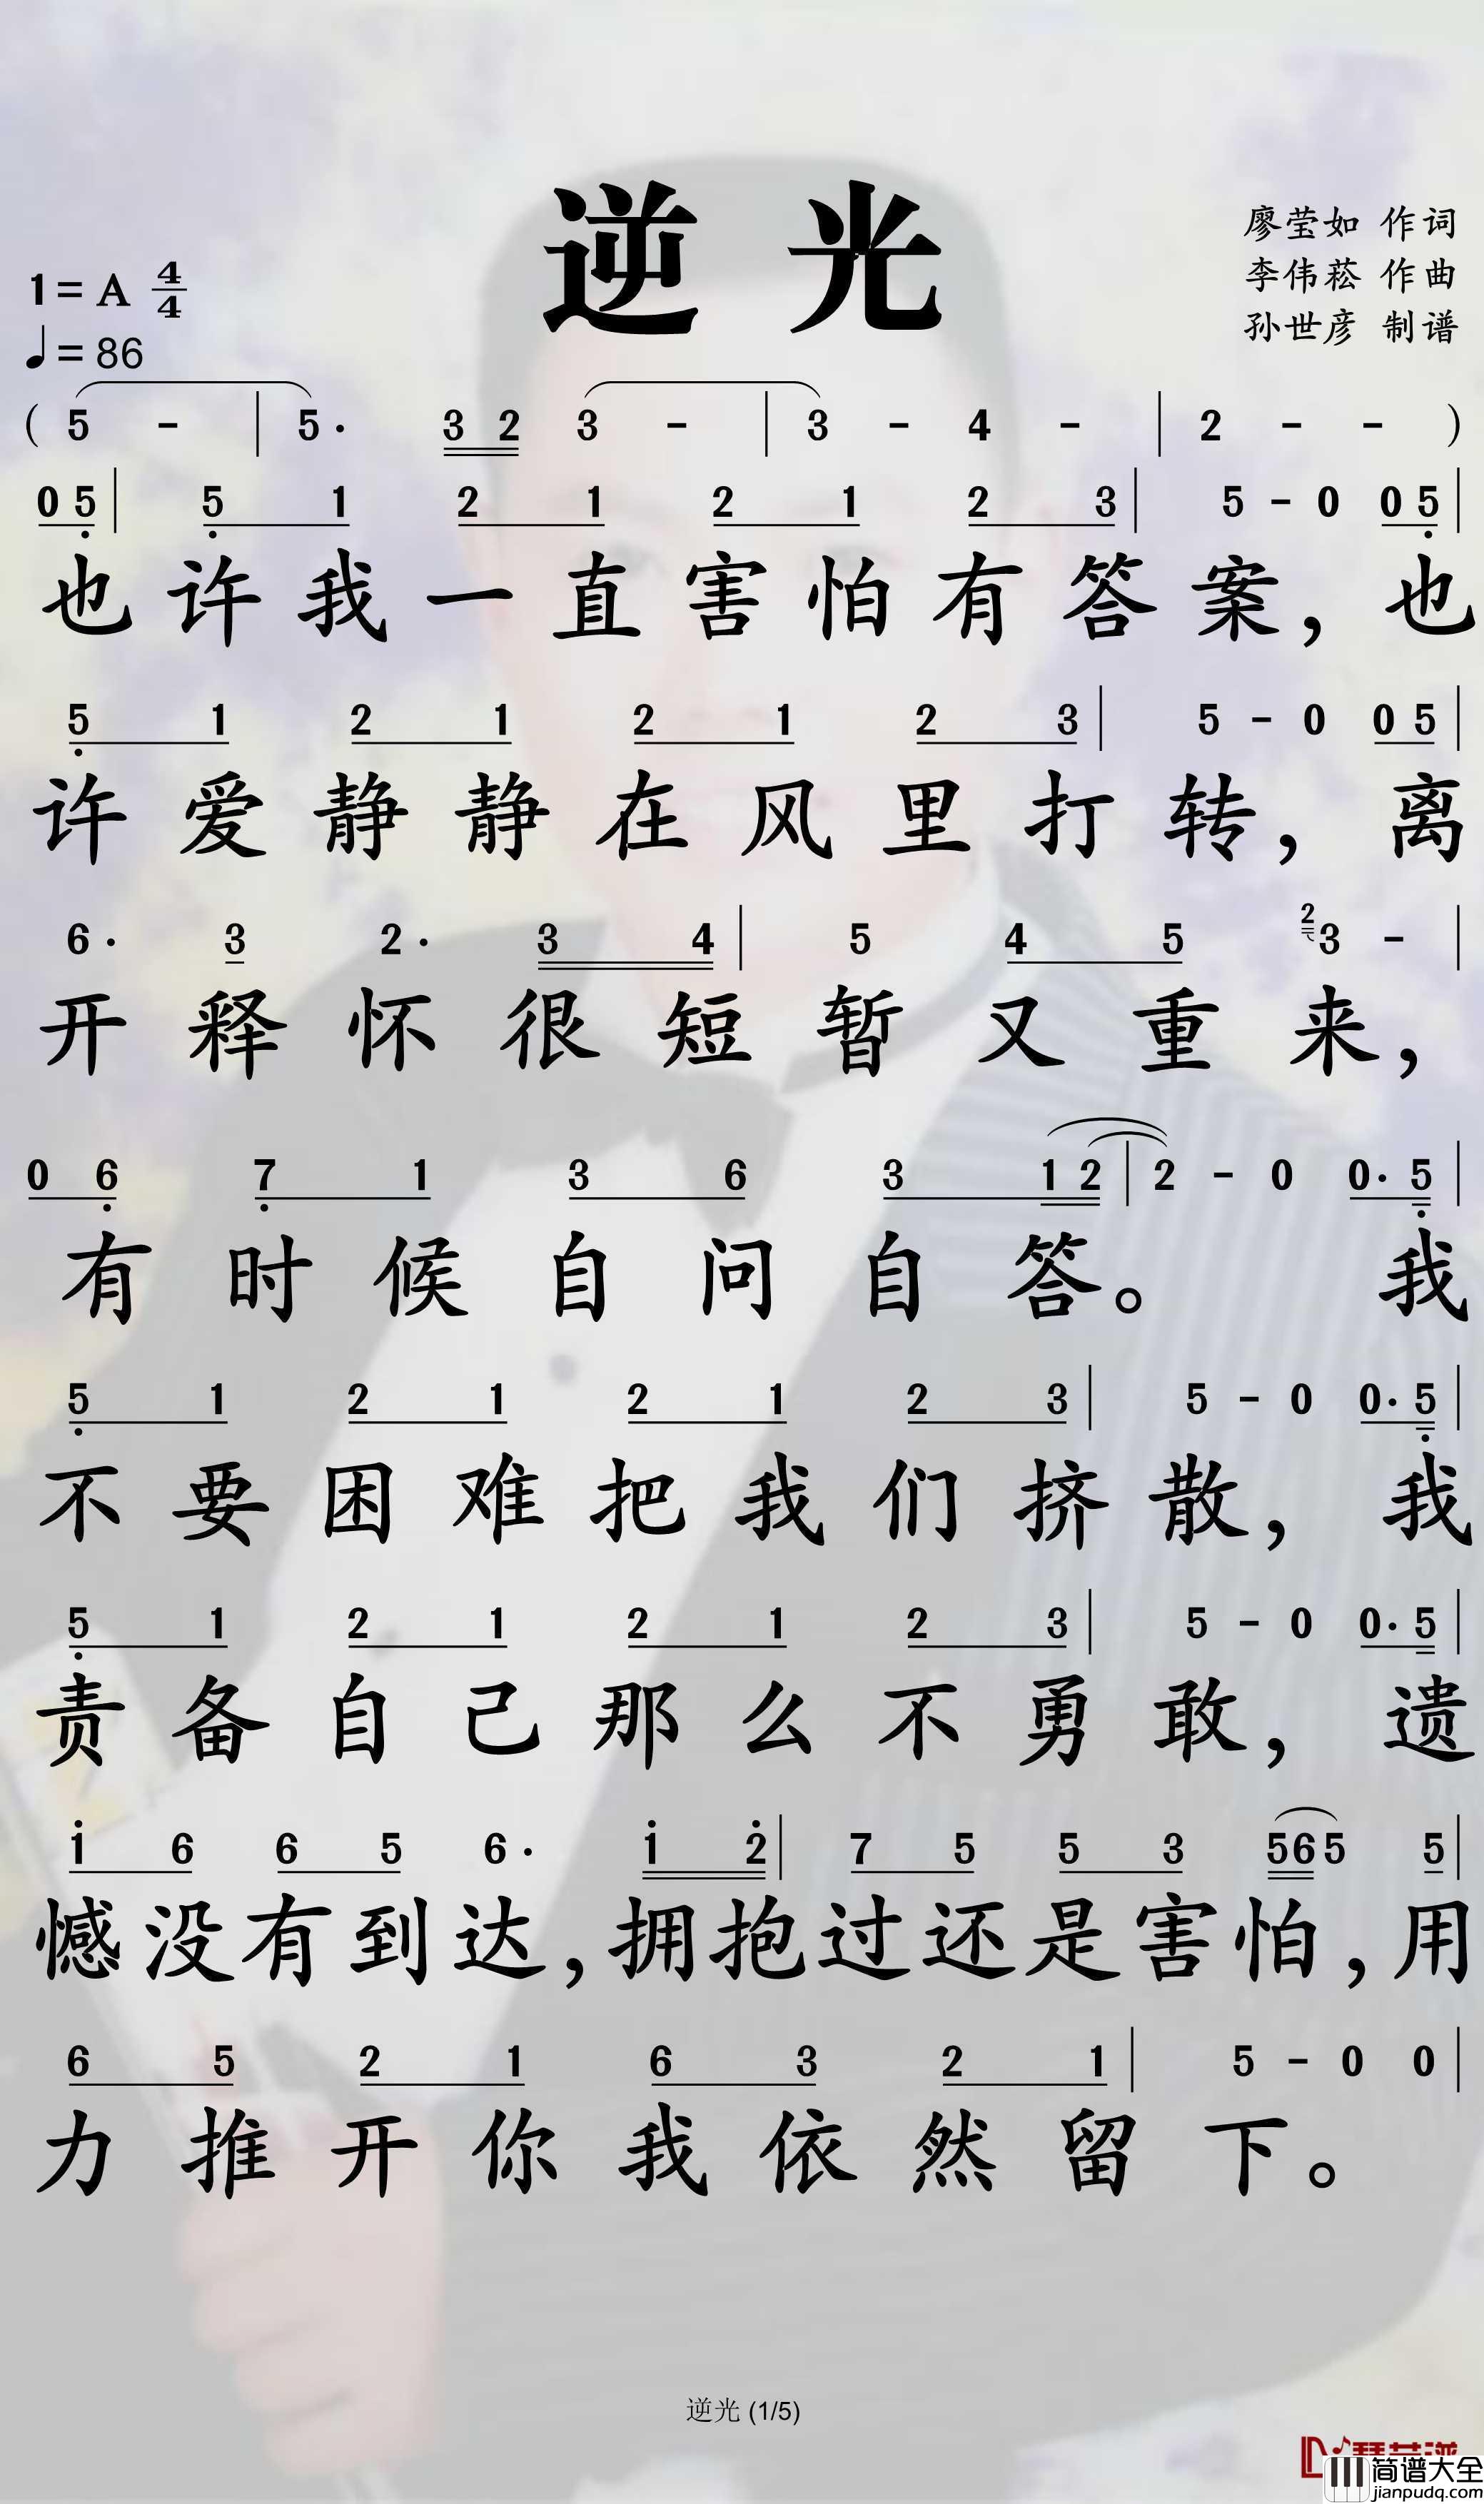 逆光
廖莹如 作词
李伟菘 作曲
孙世彦 制谱
1=A 4/4
♩=86
( 5 - | 5· 3 2 3 - | 3 - 4 - | 2 - - )
0 5 | 5 1 2 1 2 1 2 3 | 5 - 0 0 5 |
也许我一直害怕有答案，也
5 1 2 1 2 1 2 3 | 5 - 0 0 5 |
许爱静静在风里打转，离
6· 3 2· 3 4 | 5 4 5 2 3 - |
开释怀很短暂又重来，
0 6 7 1 3 6 3 1 2 | 2 - 0 0· 5 |
有时候自问自答。 我
5 1 2 1 2 1 2 3 | 5 - 0 0· 5 |
不要困难把我们挤散，我
5 1 2 1 2 1 2 3 | 5 - 0 0· 5 |
责备自己那么不勇敢，遗
1 6 6 5 6· 1 2 | 7 5 5 3 5 6 5 5 |
憾没有到达，拥抱过还是害怕，用
6 5 2 1 6 3 2 1 | 5 - 0 0 |
力推开你我依然留下。
逆光 (1/5)
简谱大全
jianpudq.com